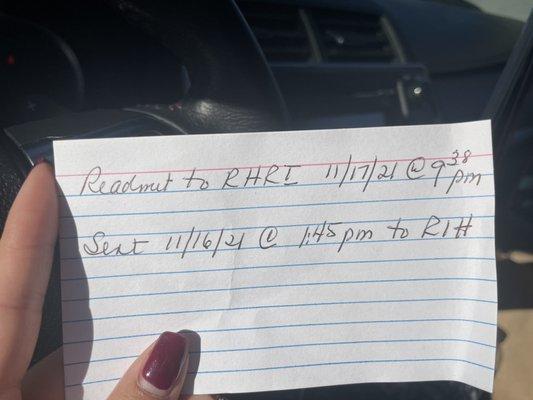 Readmit to RHRI 11/17/21 @ 9³⁸ pm
Sent 11/16/21 @ 1:45 pm to RIH